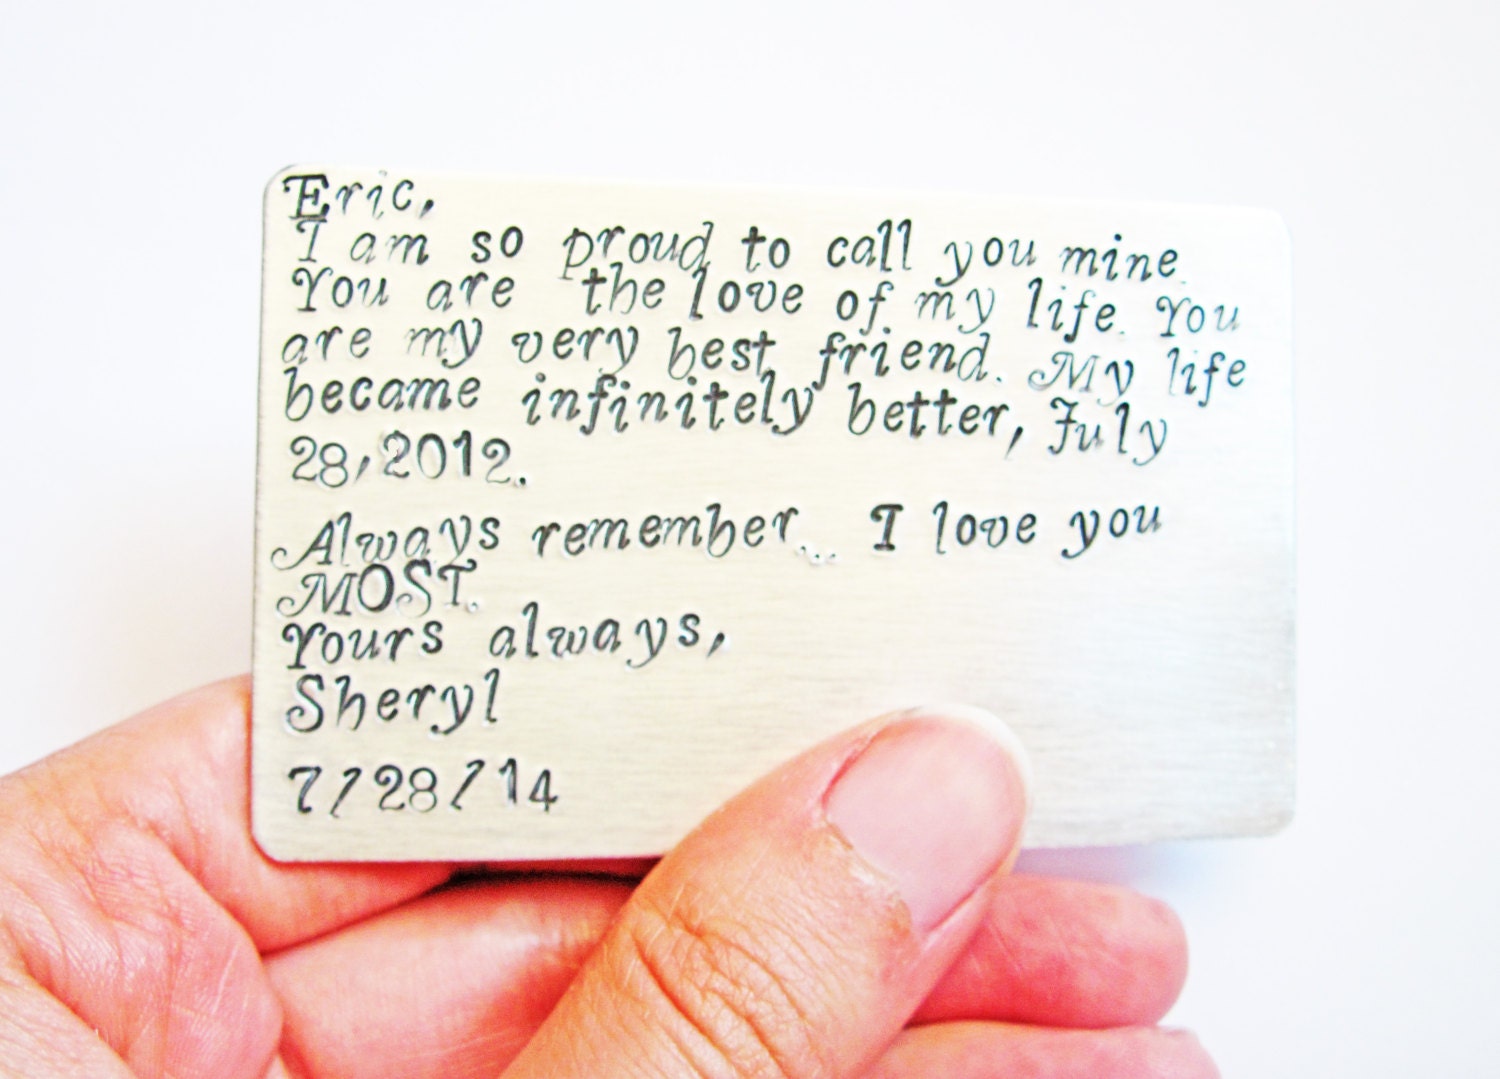 Eric,
I am so proud to call you mine.
You are the love of my life. You
are my very best friend. My life
became infinitely better, July
28,2012.
Always remember... I love you
MOST.
Yours always,
Sheryl
7/28/14